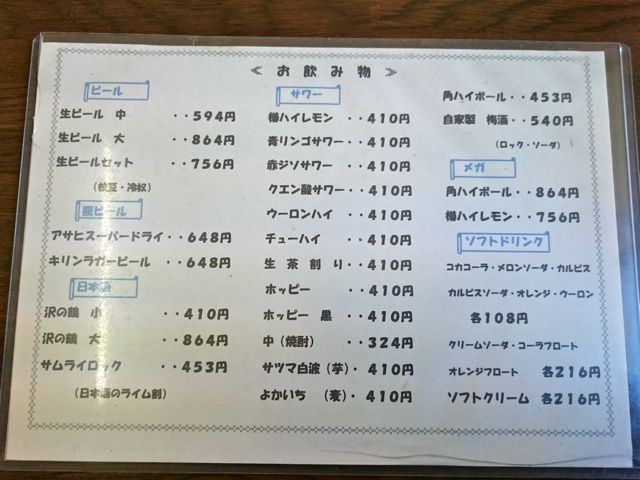 ≪ お飲み物 ≫
ビール
生ビール 中 ・・594円
生ビール 大 ・・864円
生ビールセット ・・756円
(枝豆・冷奴)
瓶ビール
アサヒスーパードライ・・648円
キリンラガービール ・・648円
日本酒
沢の鶴 小 ・・410円
沢の鶴 大 ・・864円
サムライロック ・・453円
(日本酒のライム割)
サワー
樽ハイレモン ・・410円
青リンゴサワー・・410円
赤ジソサワー ・・410円
クエン酸サワー・・410円
ウーロンハイ ・・410円
チューハイ ・・410円
生 茶 割 り・・410円
ホッピー ・・410円
ホッピー 黒 ・・410円
中(焼酎) ・・324円
サツマ白波(芋)・410円
よかいち (麦)・410円
角ハイボール・・453円
自家製 梅酒・・540円
(ロック・ソーダ)
メガ
角ハイボール・・864円
樽ハイレモン・・756円
ソフトドリンク
コカコーラ・メロンソーダ・カルピス
カルピスソーダ・オレンジ・ウーロン
各108円
クリームソーダ・コーラフロート
オレンジフロート 各216円
ソフトクリーム 各216円